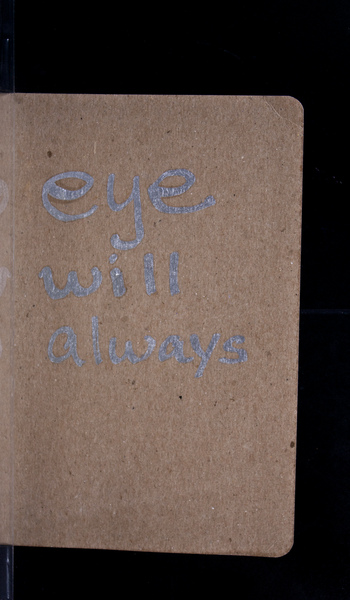 eye
will
always